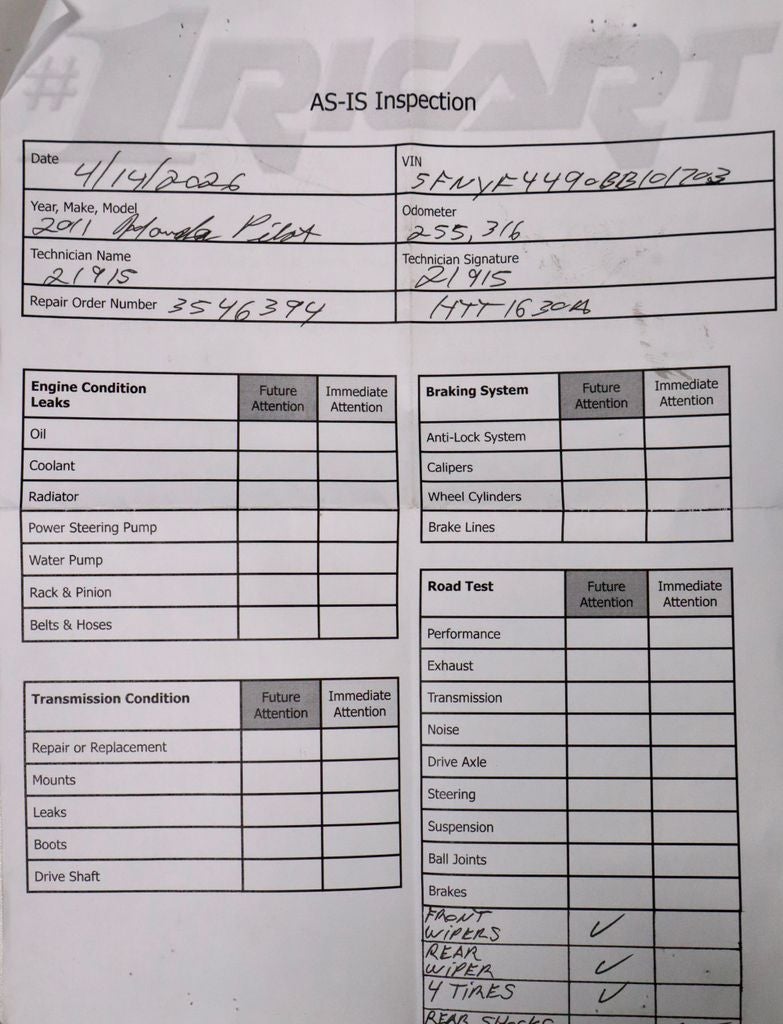 #1 RICART
AS-IS Inspection
Date 4/14/2026
VIN 5FNYF4490BB101703
Year, Make, Model 2011 Honda Pilot
Odometer 255,316
Technician Name 21915
Technician Signature 21915
Repair Order Number 3546394
HTT1630A
Engine Condition Leaks Future Attention Immediate Attention
Oil
Coolant
Radiator
Power Steering Pump
Water Pump
Rack & Pinion
Belts & Hoses
Transmission Condition Future Attention Immediate Attention
Repair or Replacement
Mounts
Leaks
Boots
Drive Shaft
Braking System Future Attention Immediate Attention
Anti-Lock System
Calipers
Wheel Cylinders
Brake Lines
Road Test Future Attention Immediate Attention
Performance
Exhaust
Transmission
Noise
Drive Axle
Steering
Suspension
Ball Joints
Brakes
FRONT
WIPERS ✓
REAR
WIPER ✓
4 TIRES ✓
REAR SHOCKS